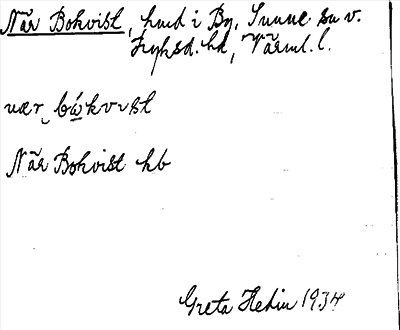 När Bokvist, hmd i By, Sunne sn v.
Fryksd. hd, Värml. l.
nær˷ bókvıst
När Bokvist hb
Greta Hedin 1934